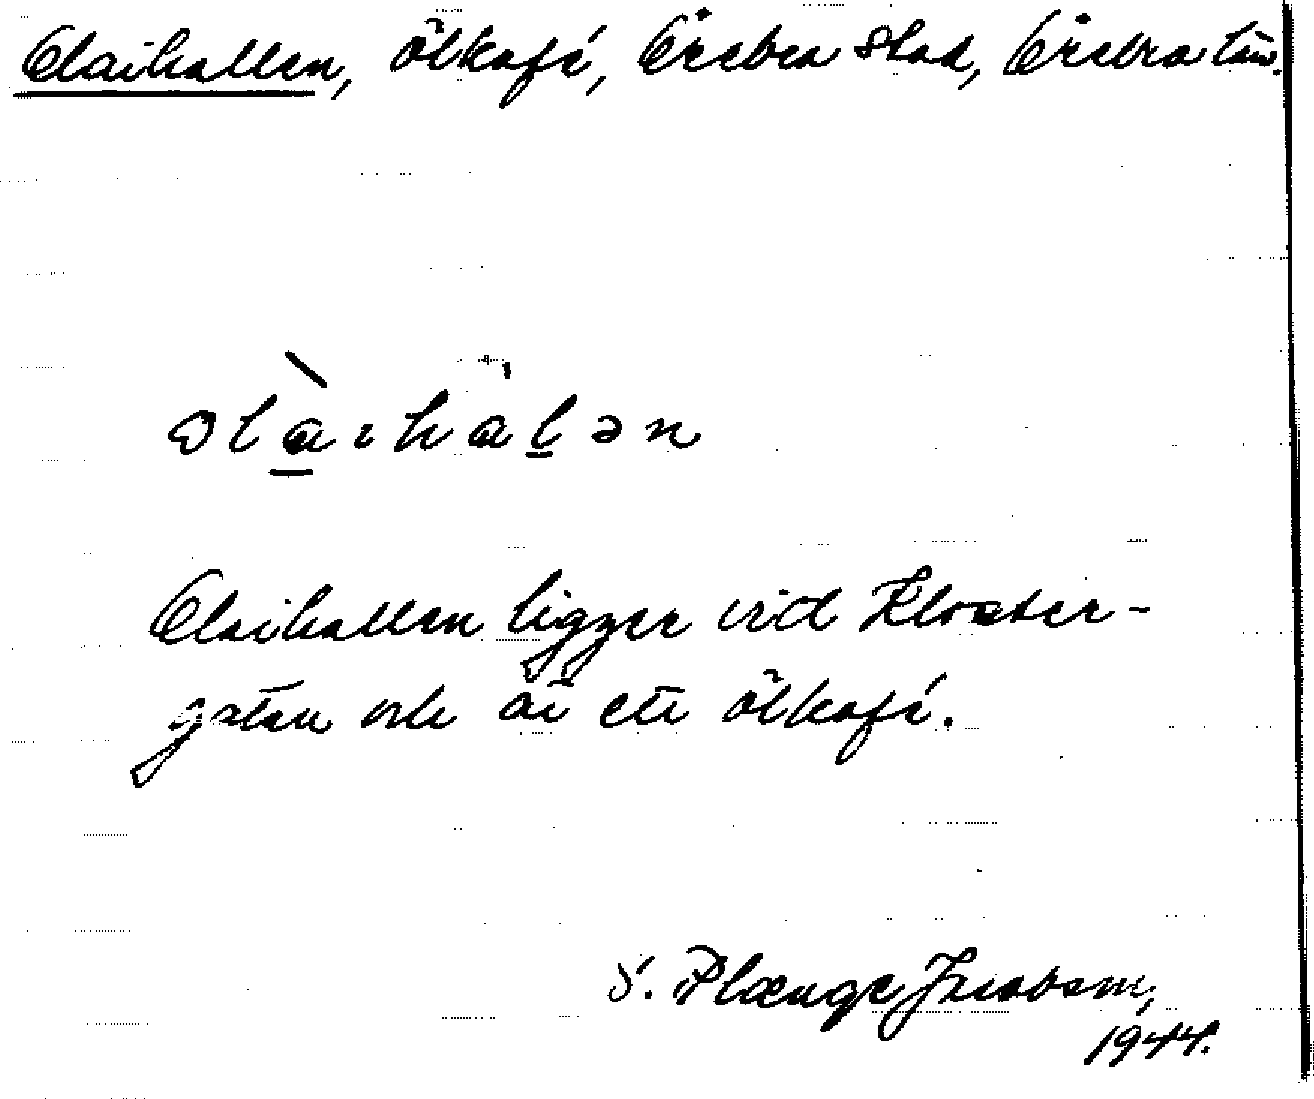 Olaihallen, ölkafé, Örebro stad, Örebro län.
Olaihallen ligger vid Kloster-
gatan och är ett ölkafé.
S. Plænge Jacobson,
1944.